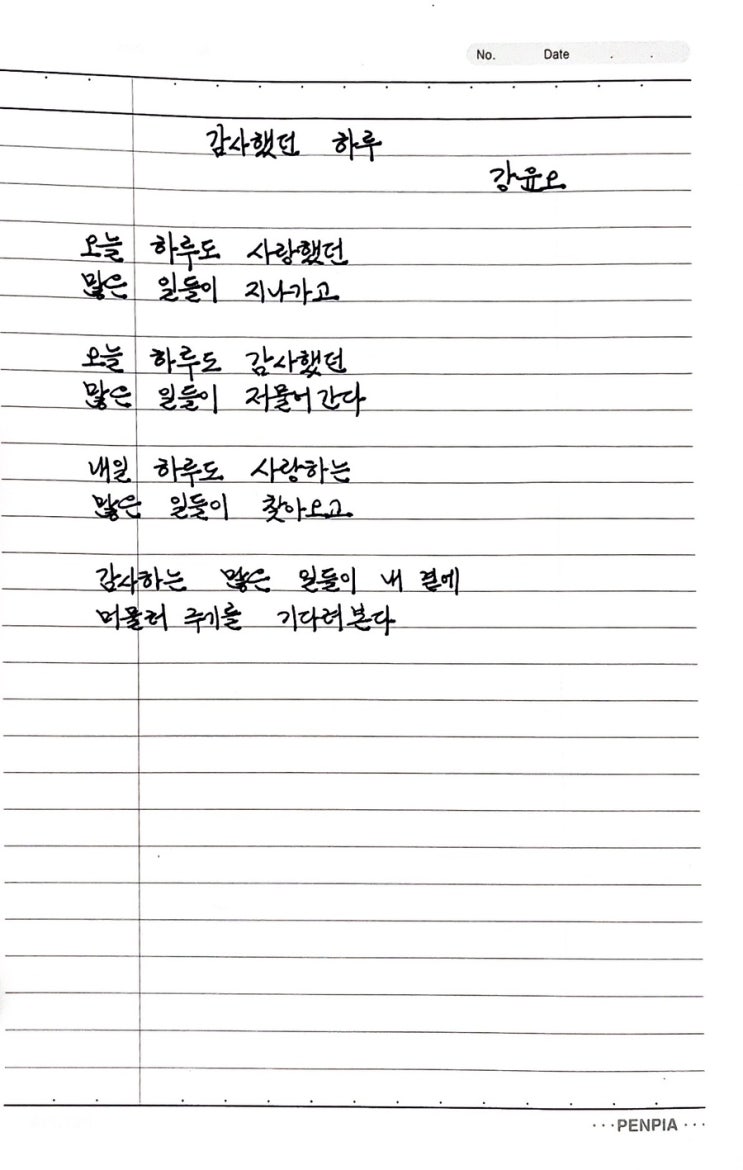 No. Date . .
감사했던 하루
강윤오
오늘 하루도 사랑했던
많은 일들이 지나가고
오늘 하루도 감사했던
많은 일들이 저물어간다
내일 하루도 사랑하는
많은 일들이 찾아오고
감사하는 많은 일들이 내 곁에
머물러 주기를 기다려본다
···PENPIA···